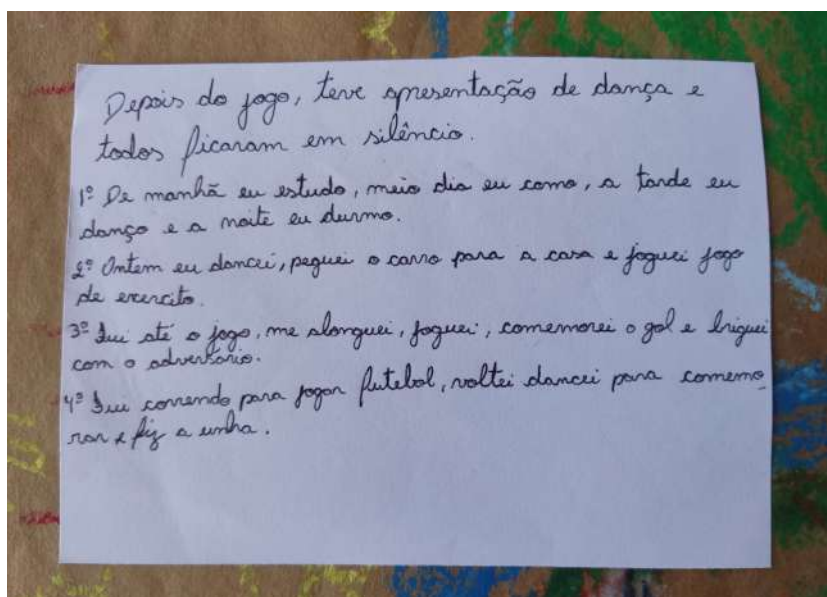 Depois do jogo, teve apresentação de dança e
todos ficaram em silêncio.
1º De manhã eu estudo, meio dia eu como, a tarde eu
danço e a noite eu durmo.
2º Ontem eu dancei, peguei o carro para a casa e joguei jogo
de exercito.
3º Fui até o jogo, me alonguei, joguei, comemorei o gol e briguei
com o adversário.
4º Fui correndo para jogar futebol, voltei dancei para comemo
rar e fiz a unha.